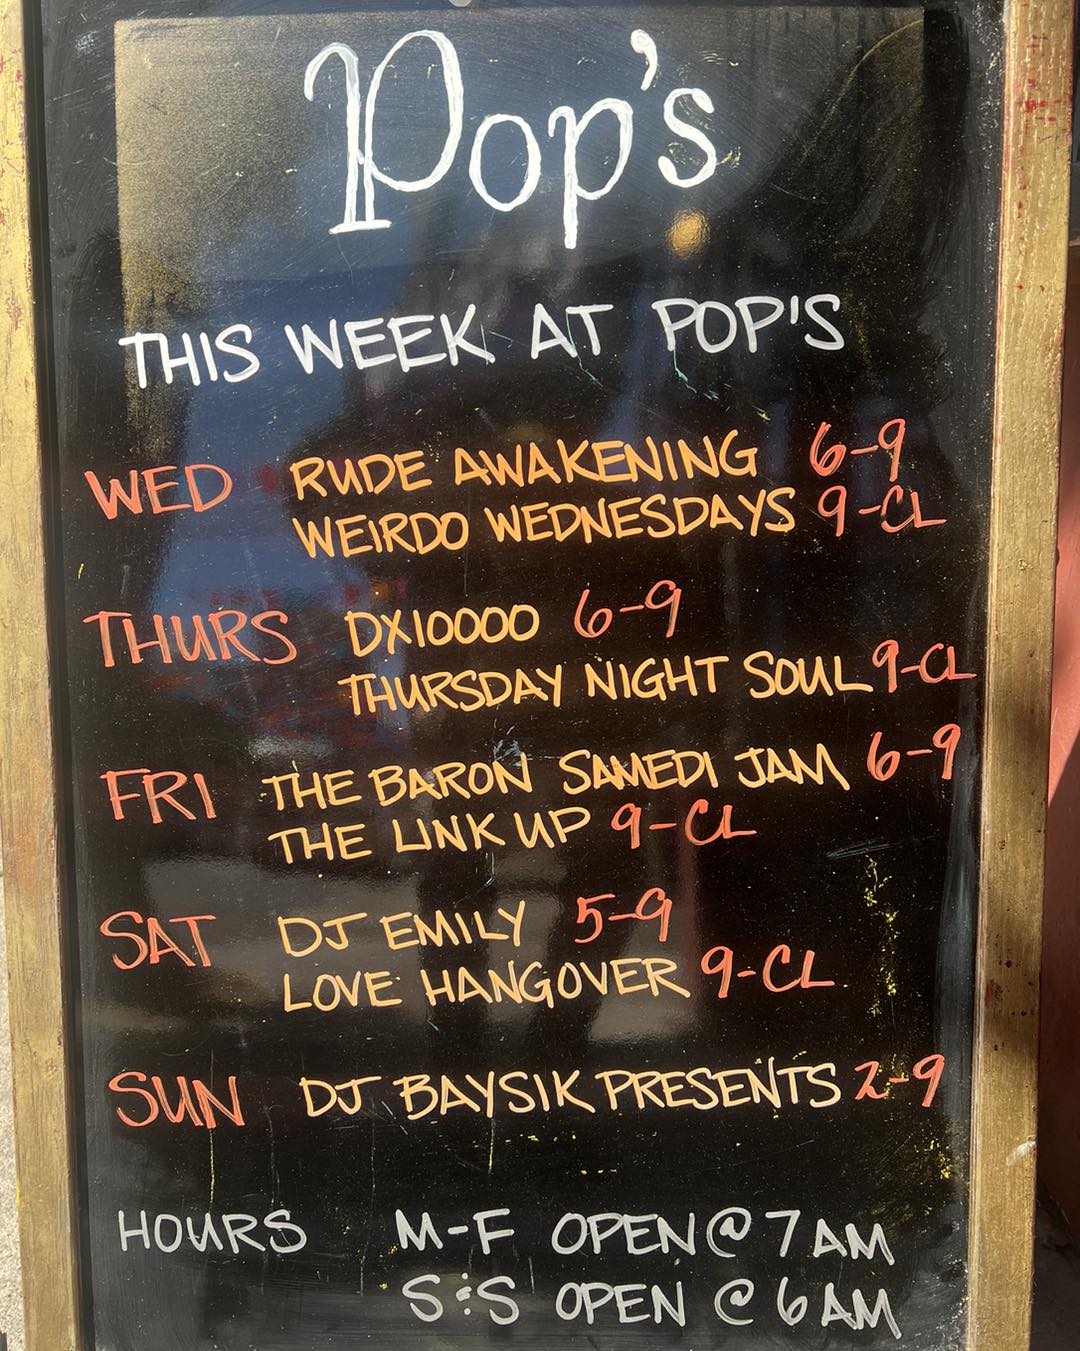 Pop's
THIS WEEK AT POP'S
WED RUDE AWAKENING 6-9
WEIRDO WEDNESDAYS 9-CL
THURS DX10000 6-9
THURSDAY NIGHT SOUL 9-CL
FRI THE BARON SAMEDI JAM 6-9
THE LINK UP 9-CL
SAT DJ EMILY 5-9
LOVE HANGOVER 9-CL
SUN DJ BAYSIK PRESENTS 2-9
HOURS M-F OPEN @ 7AM
S & S OPEN @ 6AM